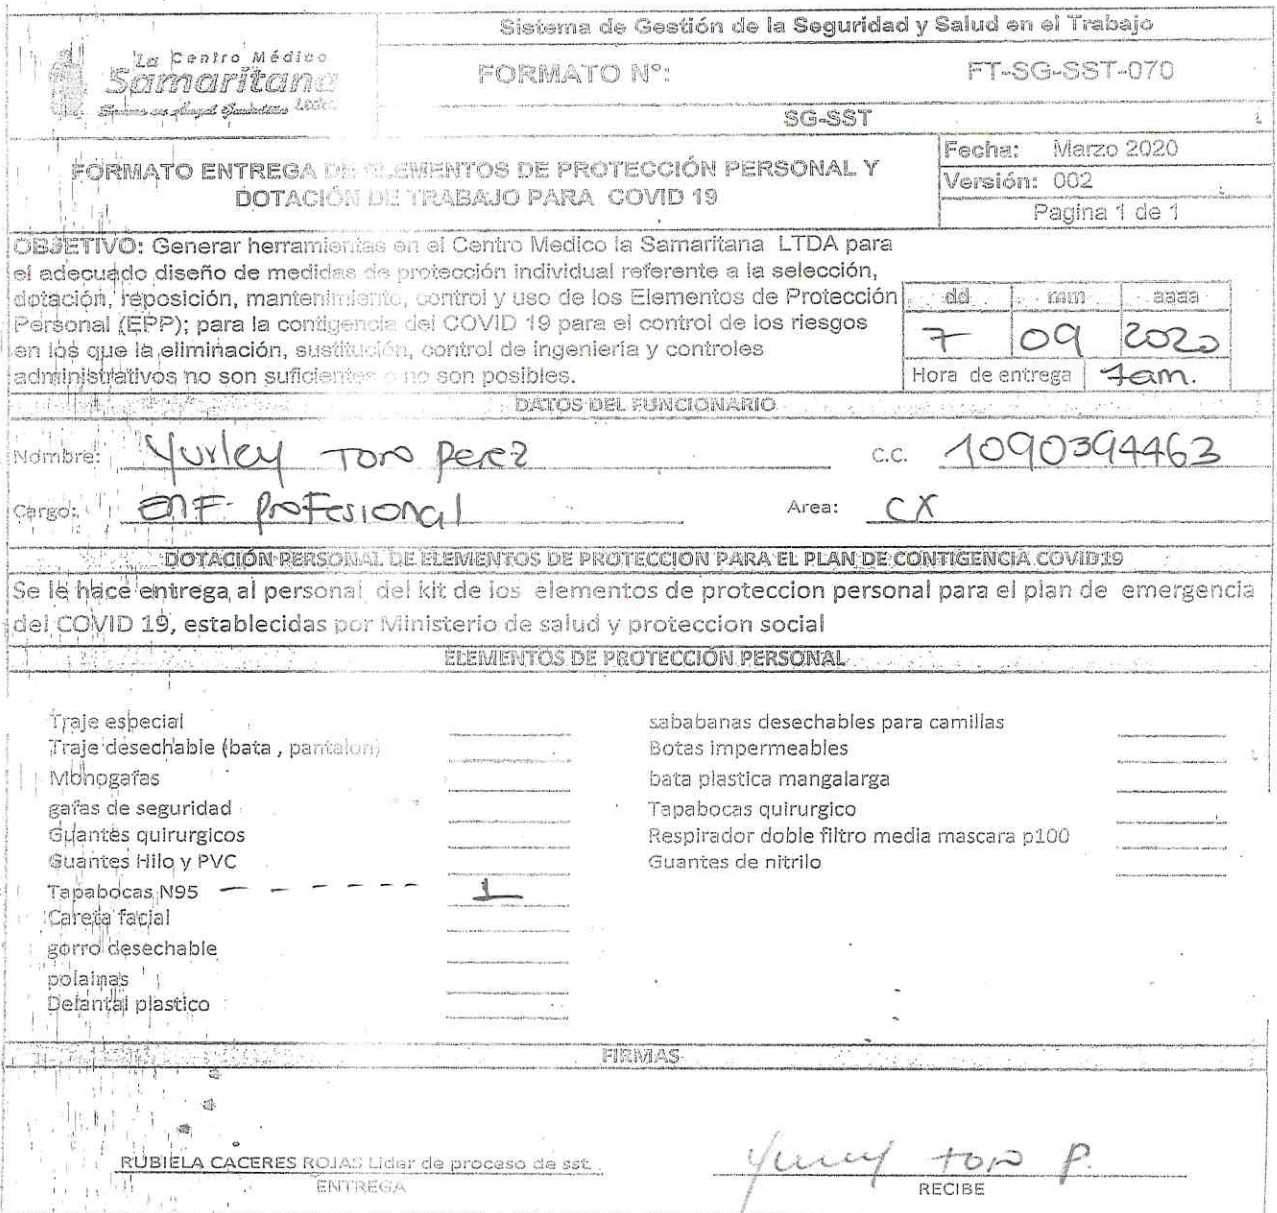 Sistema de Gestión de la Seguridad y Salud en el Trabajo
La Centro Médico
Samaritana
Ltda.
FORMATO N°: FT-SG-SST-070
SG-SST
FORMATO ENTREGA DE ELEMENTOS DE PROTECCIÓN PERSONAL Y
DOTACIÓN DE TRABAJO PARA COVID 19
Fecha: Marzo 2020
Versión: 002
Pagina 1 de 1
OBJETIVO: Generar herramientas en el Centro Medico la Samaritana LTDA para
el adecuado diseño de medidas de protección individual referente a la selección,
dotación, reposición, mantenimiento, control y uso de los Elementos de Protección
Personal (EPP); para la contigencia del COVID 19 para el control de los riesgos
en los que la eliminación, sustitución, control de ingeniería y controles
administrativos no son suficientes o no son posibles.
dd mm aaaa
7 09 2020
Hora de entrega 7am.
DATOS DEL FUNCIONARIO
Nombre: Yurley Toro Perez C.C. 1090394463
Cargo: ENF. Profesional Area: CX
DOTACIÓN PERSONAL DE ELEMENTOS DE PROTECCION PARA EL PLAN DE CONTIGENCIA COVID19
Se le hace entrega al personal del kit de los elementos de proteccion personal para el plan de emergencia
del COVID 19, establecidas por Ministerio de salud y proteccion social
ELEMENTOS DE PROTECCIÓN PERSONAL
Traje especial
Traje desechable (bata , pantalon)
Monogafas
gafas de seguridad
Guantes quirurgicos
Guantes Hilo y PVC
Tapabocas N95 - - - - - - - 1
Careta facial
gorro desechable
polainas
Delantal plastico
sababanas desechables para camillas
Botas impermeables
bata plastica mangalarga
Tapabocas quirurgico
Respirador doble filtro media mascara p100
Guantes de nitrilo
FIRMAS
RUBIELA CACERES ROJAS Lider de proceso de sst.
ENTREGA
Yurley Toro P.
RECIBE